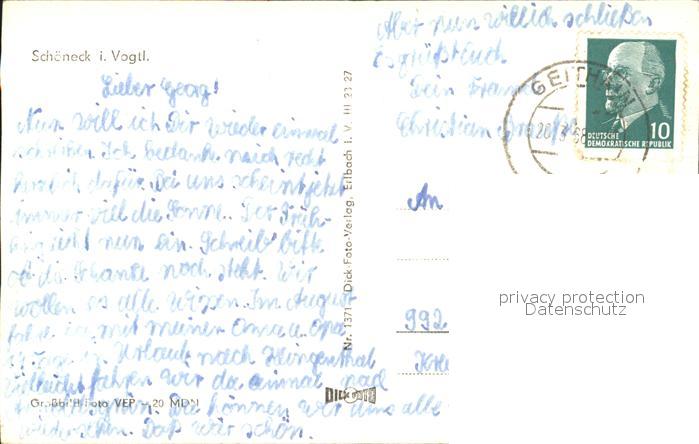 Schöneck i. Vogtl.
Lieber Georg!
Nun will ich Dir wieder einmal
schreiben. Ich bedanke mich recht
herzlich dafür. Bei uns scheint jetzt
immer viel die Sonne. Der Früh-
zieht nun ein. Schreib bitte
ob die Schanze noch steht. Wir
wollen es alle wissen. Im August
fahre ich mit meiner Oma u. Opa
Urlaub nach Klingenthal
Vielleicht fahren wir da einmal nach
Da können wir uns alle
wiedersehen. Das wär schön.
Großbild Foto VEP - 20 MDN
Nr. 1371 Dick-Foto-Verlag, Erlbach i. V. III 23 27
DICK FOTO
Aber nun will ich schließen
Es grüßt Euch
Dein
Christian
GEITHAIN
DEUTSCHE
DEMOKRATISCHE REPUBLIK
10
An
992
privacy protection
Datenschutz